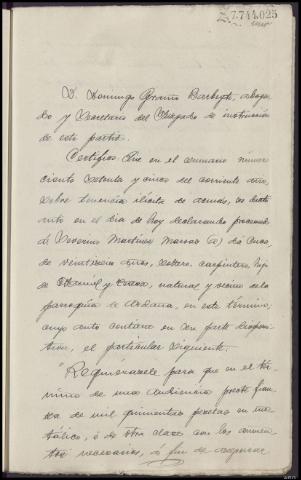 7.744.025
D. Domingo Barbeyto, aboga-
do y Secretario del Juzgado de instrucción
de este partido.
Certifico: Que en el sumario número
ciento setenta y cinco del corriente año,
sobre tenencia ilícita de armas, se dictó
auto en el día de hoy declarando procesado
á Severino Martínez (a) do Cuco,
de veintiseis años, soltero, carpintero, hijo
de Manuel y natural y vecino de la
parroquia de en este término;
cuyo auto contiene en su parte disposi-
tiva, el particular siguiente.
Requiérasele para que en el tér-
mino de una audiencia preste fian-
za de mil quinientas pesetas en me-
tálico, ó de otra clase con los aumen-
tos necesarios, á fin de asegurar